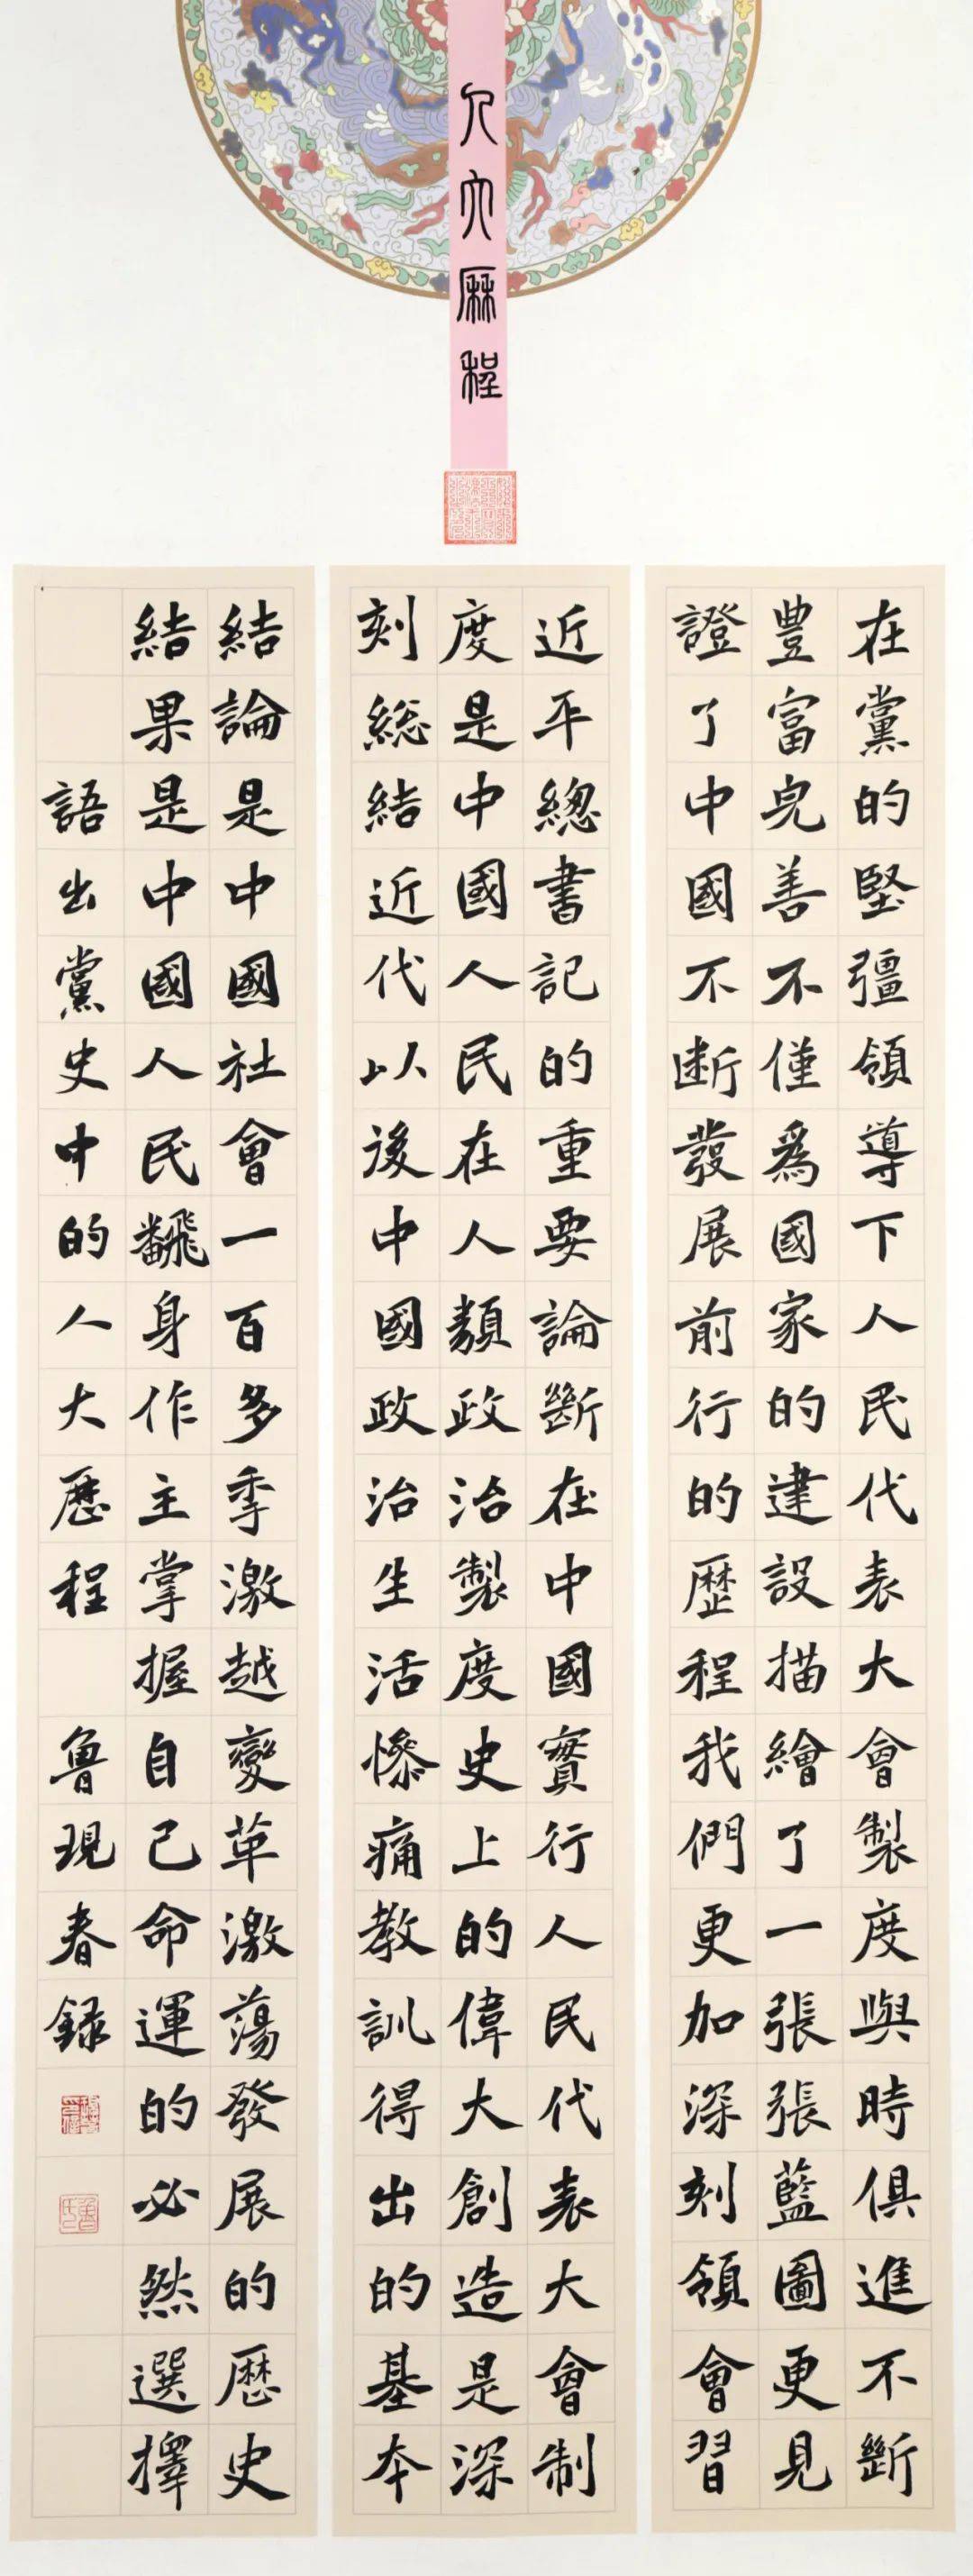 人大厤程
在黨的堅彊領導下人民代表大會製度與時俱進不斷
豐富皃善不僅爲國家的建設描繪了一張張藍圖更見
證了中國不断發展前行的歷程我們更加深刻領會習
近平總書記的重要論斷在中國實行人民代表大會制
度是中國人民在人類政治製度史上的偉大創造是深
刻総結近代以後中國政治生活慘痛教訓得出的基本
結論是中國社會一百多季激越變革激蕩發展的歷史
結果是中國人民飜身作主掌握自己命運的必然選擇
語出黨史中的人大歷程
魯現春錄